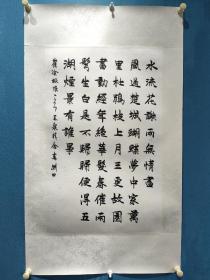 水流花謝兩無情盡
風過楚城蝴蝶夢中家萬
里杜鵑枝上月三更故園
書動經年絕華髮春催兩
鬢生自是不歸歸便得五
湖煙景有誰爭